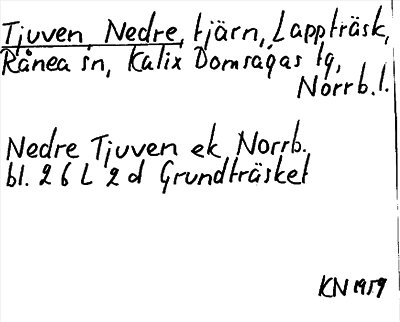 Tjuven, Nedre, tjärn, Lappträsk,
Råneå sn, Kalix Domsagas tg,
Norrb.l.
Nedre Tjuven ek Norrb.
bl. 26 L 2 d Grundträsket
KN 1959